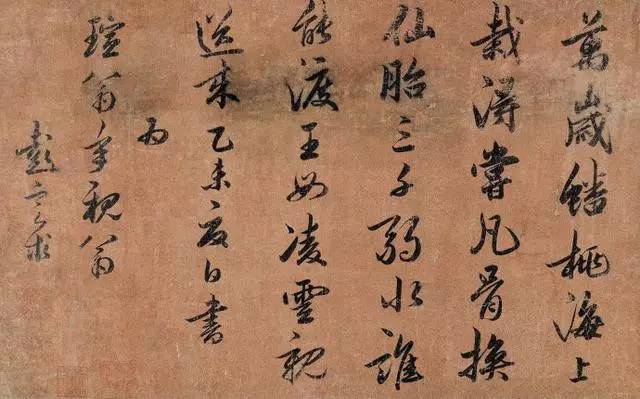 萬歲蟠桃海上
栽得嘗凡骨換
仙胎三千弱水誰
能渡王母凌雲親
送來乙未夏日書
為
瑄翁年親翁